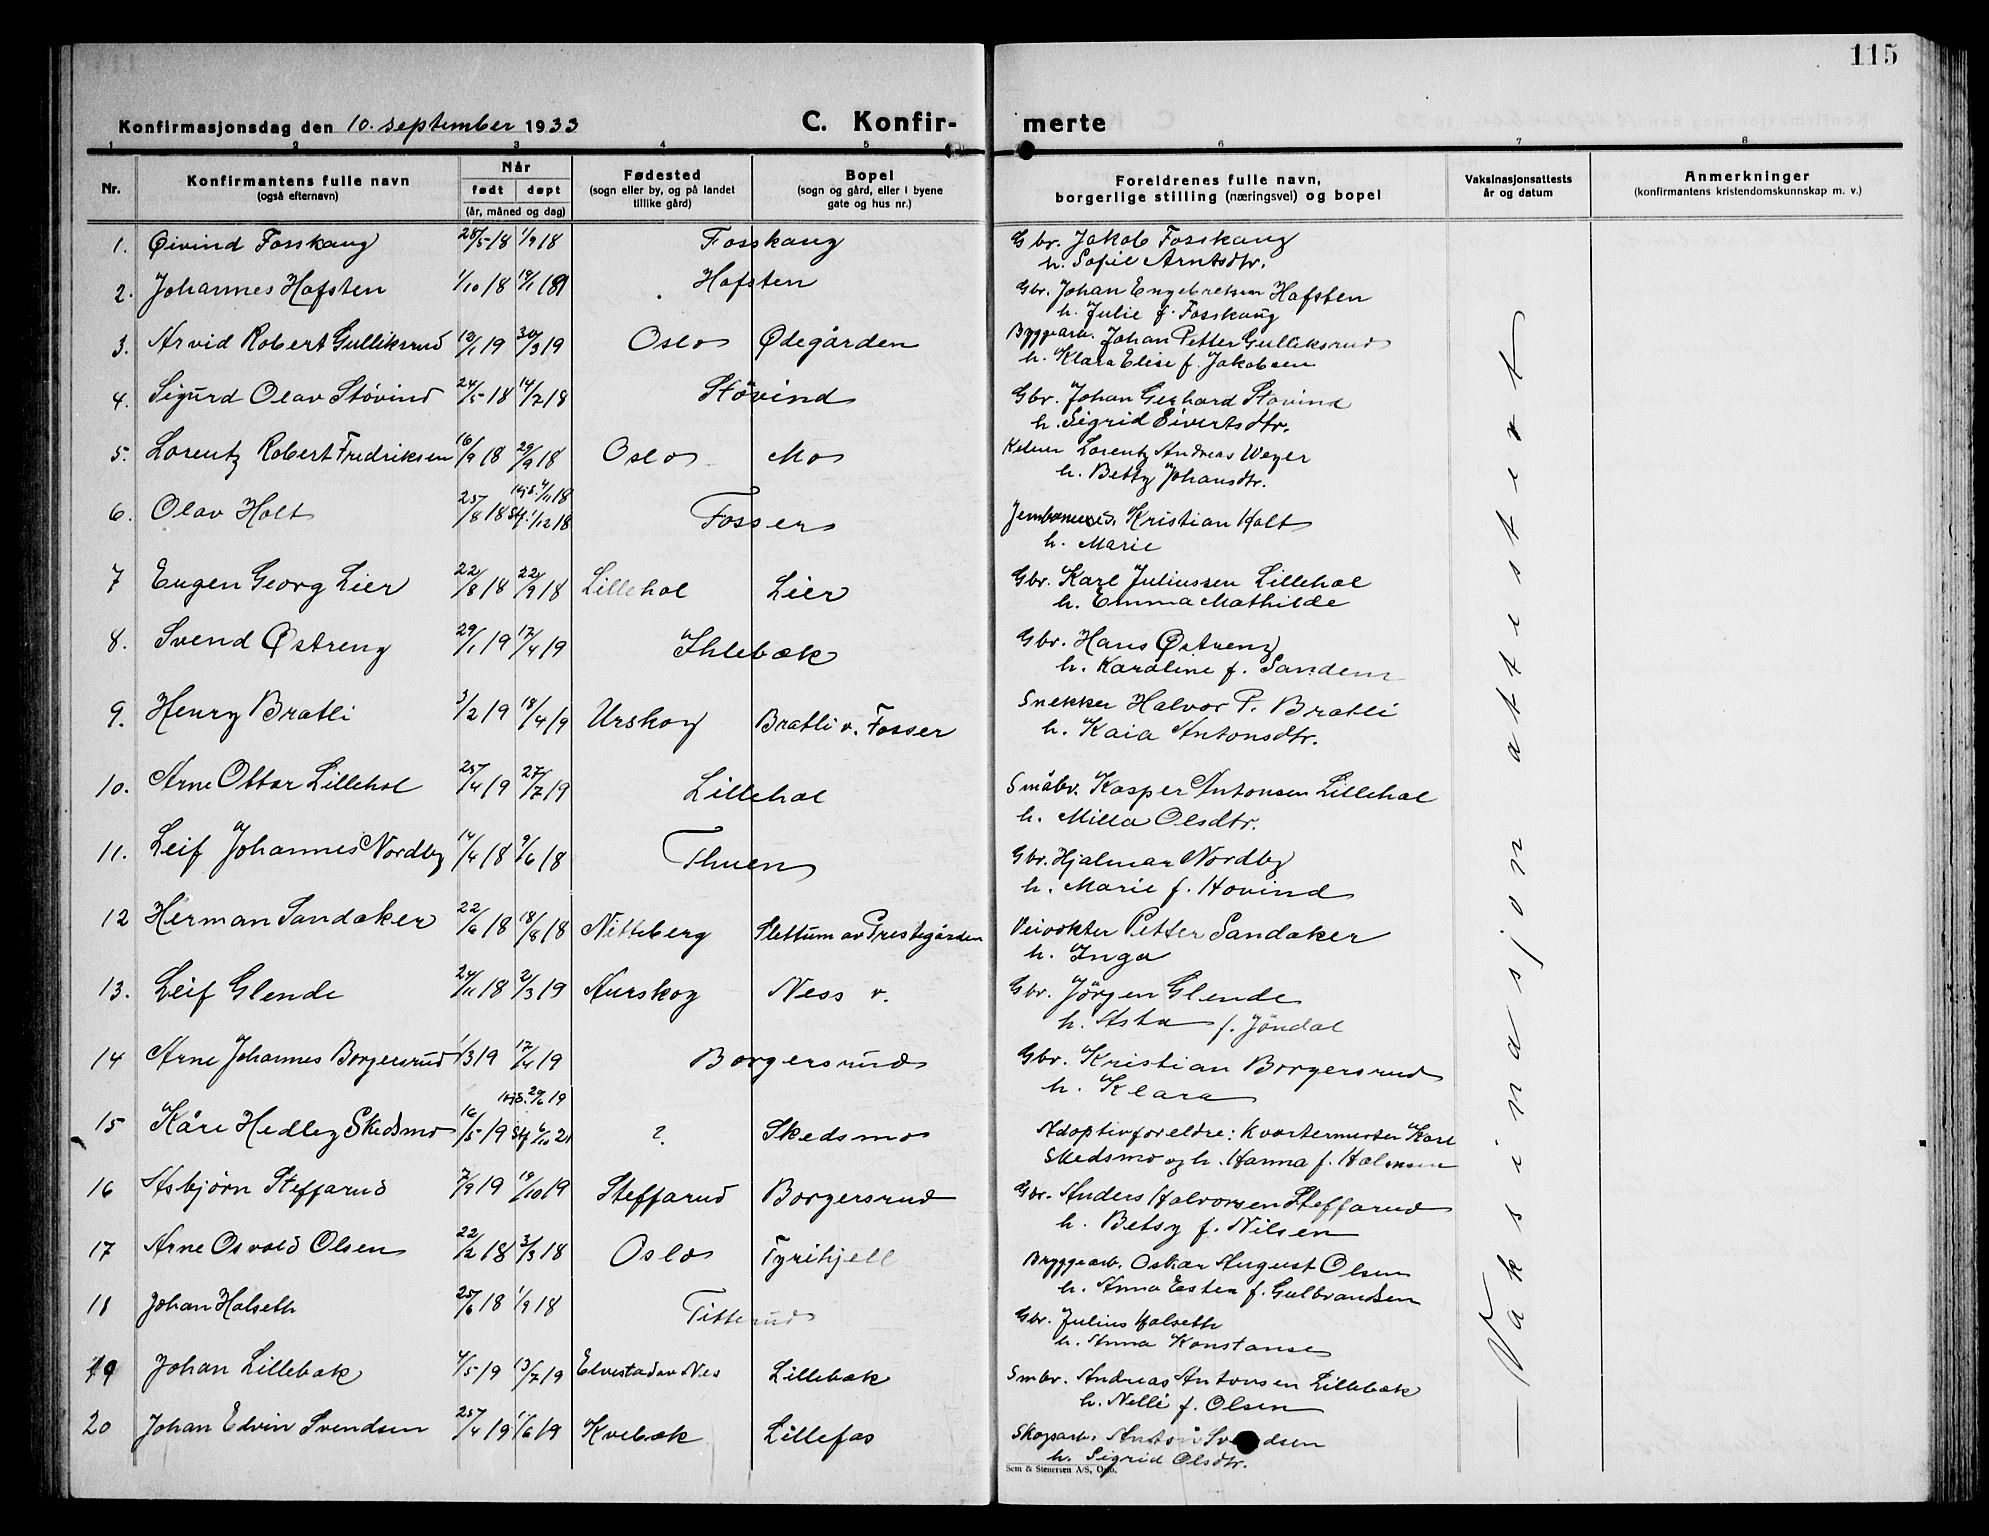 115
Konfirmasjonsdag den 10. september 1933 C. Konfir- merte
1 2 3 4 5 6 7 8
Nr. Konfirmantens fulle navn (også efternavn) Når født døpt (år, måned og dag) Fødested (sogn eller by, og på landet tillike gård) Bopel (sogn og gård, eller i byene gate og hus nr.) Foreldrenes fulle navn, borgerlige stilling (næringsvei) og bopel Vaksinasjonsattests år og datum Anmerkninger (konfirmantens kristendomskunnskap m. v.)
1. Øivind Fosskaug 28/5 18 1/9 18 Fosskaug Gbr. Jakob Fosskaug
h. Sofie Arntsdtr.
2. Johannes Hafsten 1/10 18 19/1 19 Hafsten Gbr. Johan Engebretsen Hafsten
h. Julie f. Fosskaug
3. Arvid Robert Gulliksrud 10/1 19 30/3 19 Oslo Ødegården Byggearb. Johan Petter Gulliksrud
h. Klara Elise f. Jakobsen
4. Sigurd Olav Støvind 24/5 18 14/7 18 Støvind Gbr. Johan Gerhard Støvind
h. Sigrid Eivertsdtr.
5. Lorentz Robert Fredriksen 16/9 18 29/9 18 Oslo Mo Kelner Lorentz Andreas Weyer
h. Betty Johansdtr.
6. Olav Holt 25/8 18 hj.d. 4/11 18 stf. 1/12 18 Fosser Kristian Holt
h. Marie
7 Eugen Georg Lier 22/8 18 22/9 18 Lillehol Lier Gbr. Karl Juliussen Lillehol
h. Emma Mathilde
8. Svend Østreng 29/1 19 17/4 19 Ihlebæk Gbr. Hans Østreng
h. Karoline f. Sandem
9. Henry Bratli 3/2 19 18/4 19 Urskog Bratli v. Fosser Snekker Halvor P. Bratli
h. Kaia Antonsdtr.
10. Arne Ottar Lillehol 25/4 19 27/7 19 Lillehol Småbr. Kasper Antonsen Lillehol
h. Milla Olsdtr.
11. Leif Johannes Nordby 14/4 18 9/6 18 Thuen Gbr. Hjalmar Nordby
h. Marie f. Hovind
12 Herman Sandaker 22/6 18 18/8 18 Nitteberg Slettum av Prestegården Veivokter Petter Sandaker
h. Inga
13. Leif Glende 24/11 18 2/3 19 Aurskog Ness v. Gbr. Jörgen Glende
h. Asta f. Jöndal
14 Arne Johannes Borgersrud 1/3 19 17/4 19 Borgersrud Gbr. Kristian Borgersrud
h. Klara
15 Kåre Hedley Skedsmo 16/5 19 hj.d. 29/6 19 stf. 6/10 21 ?. Skedsmo Adoptivforeldre: Kvartermester Karl
Skedsmo og h. Hanna f. Halmsen
16 Asbjørn Steffarud 7/9 19 19/10 19 Steffarud Borgersrud Gbr. Anders Halvorsen Steffarud
h. Betsy f. Nilsen
17 Arne Osvald Olsen 22/2 18 3/3 18 Oslo Tyrihjell Bryggearb. Oskar August Olsen
h. Anna Ester f. Gulbrandsen
18 Johan Halseth 25/6 18 1/9 18 Titterud Gbr. Julius Halseth
h. Anna Konstanse
19 Johan Lillebæk 4/5 19 13/7 19 Elvestad av Nes Lillebæk Smbr. Andreas Antonsen Lillebæk
h. Nelli f. Olsen
20 Johan Edvin Svendsen 25/4 19 1/6 19 Kvebæk Lillefos Skogsarb. Anton Svendsen
h. Sigrid Olsdtr.
Vaksinasjon attestert
Sem & Stenersen A/S, Oslo.